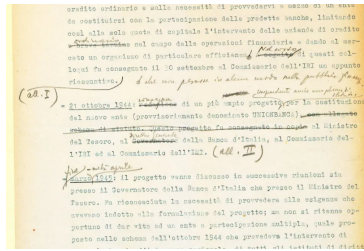 credito ordinario e sulla necessità di provvedervi a mezzo di un ente
da costituirsi con la partecipazione delle predette banche, limitando
così alla sola quota di capitale l'intervento delle aziende di credito
ordinario
a breve termine nel campo delle operazioni finanziarie e dando al mer-
cato un organismo di particolare efficienza. di questi col-
loqui fu consegnato il 10 settembre al Commissario dell'IRI un appunto
riassuntivo.
(all. I)
- 21 ottobre 1944: di un più ampio progetto per la costituzione
del nuovo ente (provvisoriamente denominato UNIONBANCA) con allegato
schema di statuto. Questo progetto fu consegnato in copia al Ministro
del Tesoro, al Governatore della Banca d'Italia, al Commissario del-
l'IRI ed al Commissario dell'IMI. (all. II)
marzo 1945: il progetto venne discusso in successive riunioni sia
presso il Governatore della Banca d'Italia che presso il Ministro del
Tesoro. Fu riconosciuta la necessità di provvedere alle esigenze che
avevano indotto alla formulazione del progetto; ma non si ritenne op-
portuno di dar vita ad un ente a partecipazione multipla, quale pro-
posto nello schema dell'ottobre 1944 che prevedeva l'intervento di